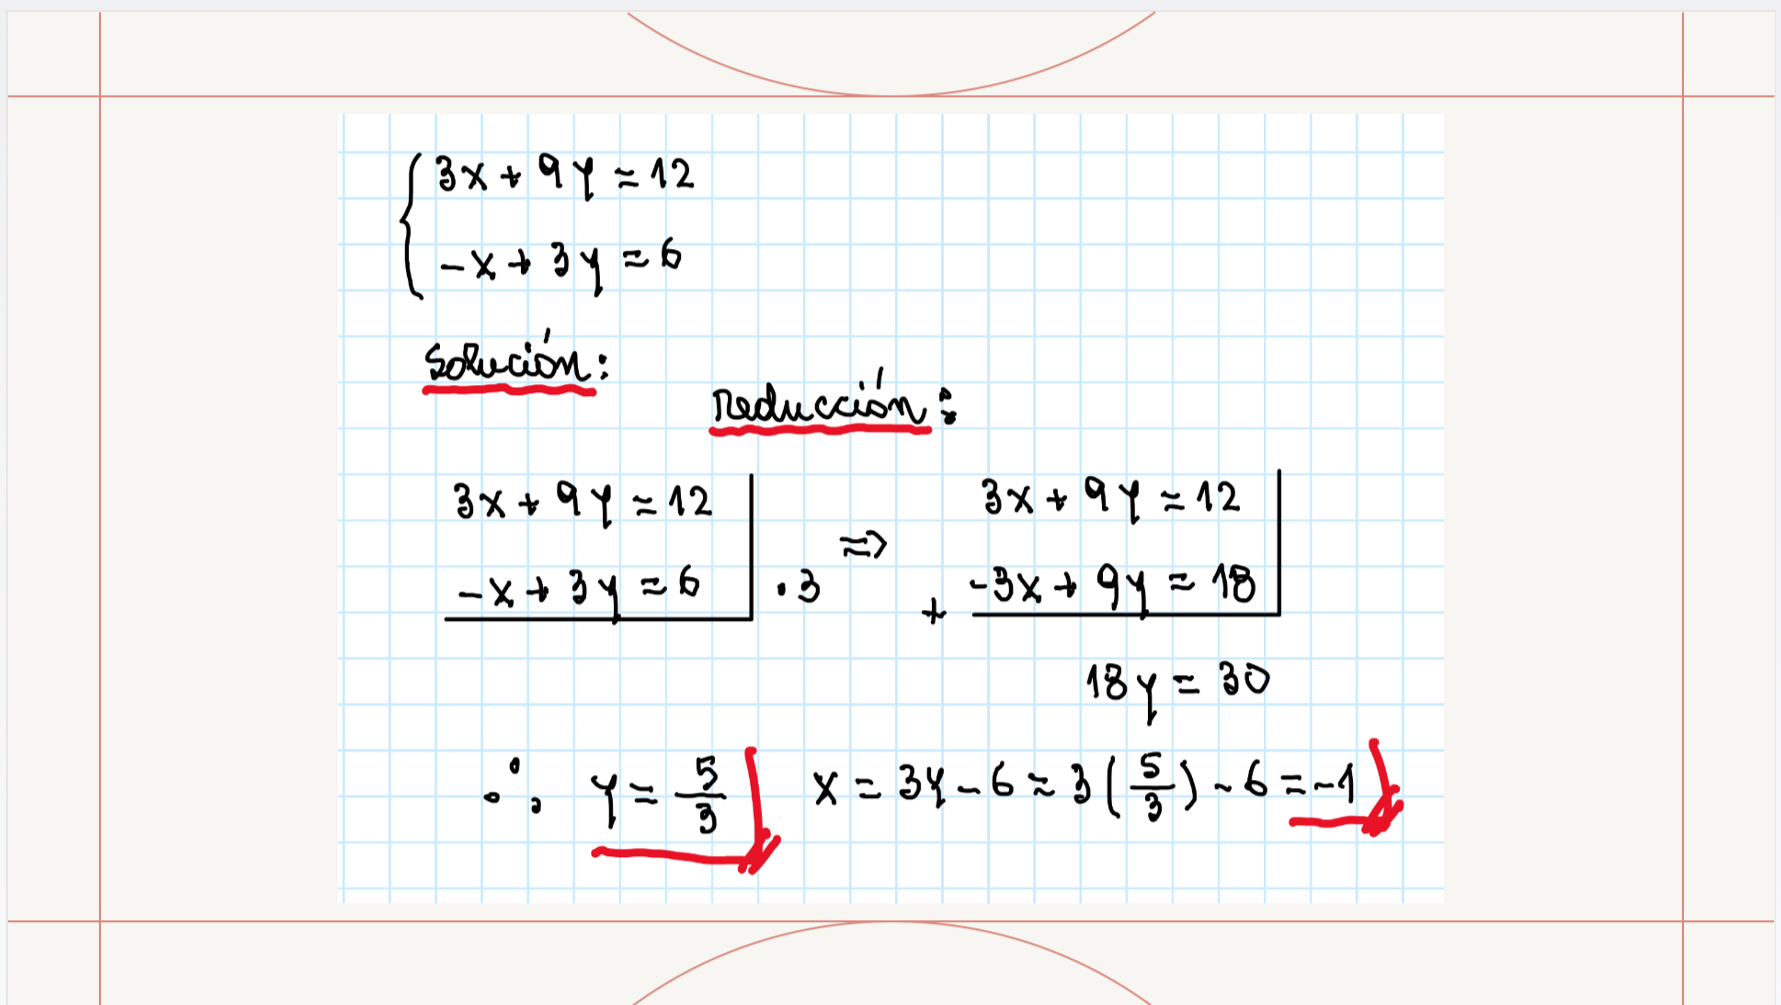 3x + 9y = 12
-x + 3y = 6
Solución:
Reducción:
3x + 9y = 12
-x + 3y = 6 · 3
⇒
3x + 9y = 12
+ -3x + 9y = 18
18y = 30
∴ y = 5/3
x = 3y - 6 = 3(5/3) - 6 = -1